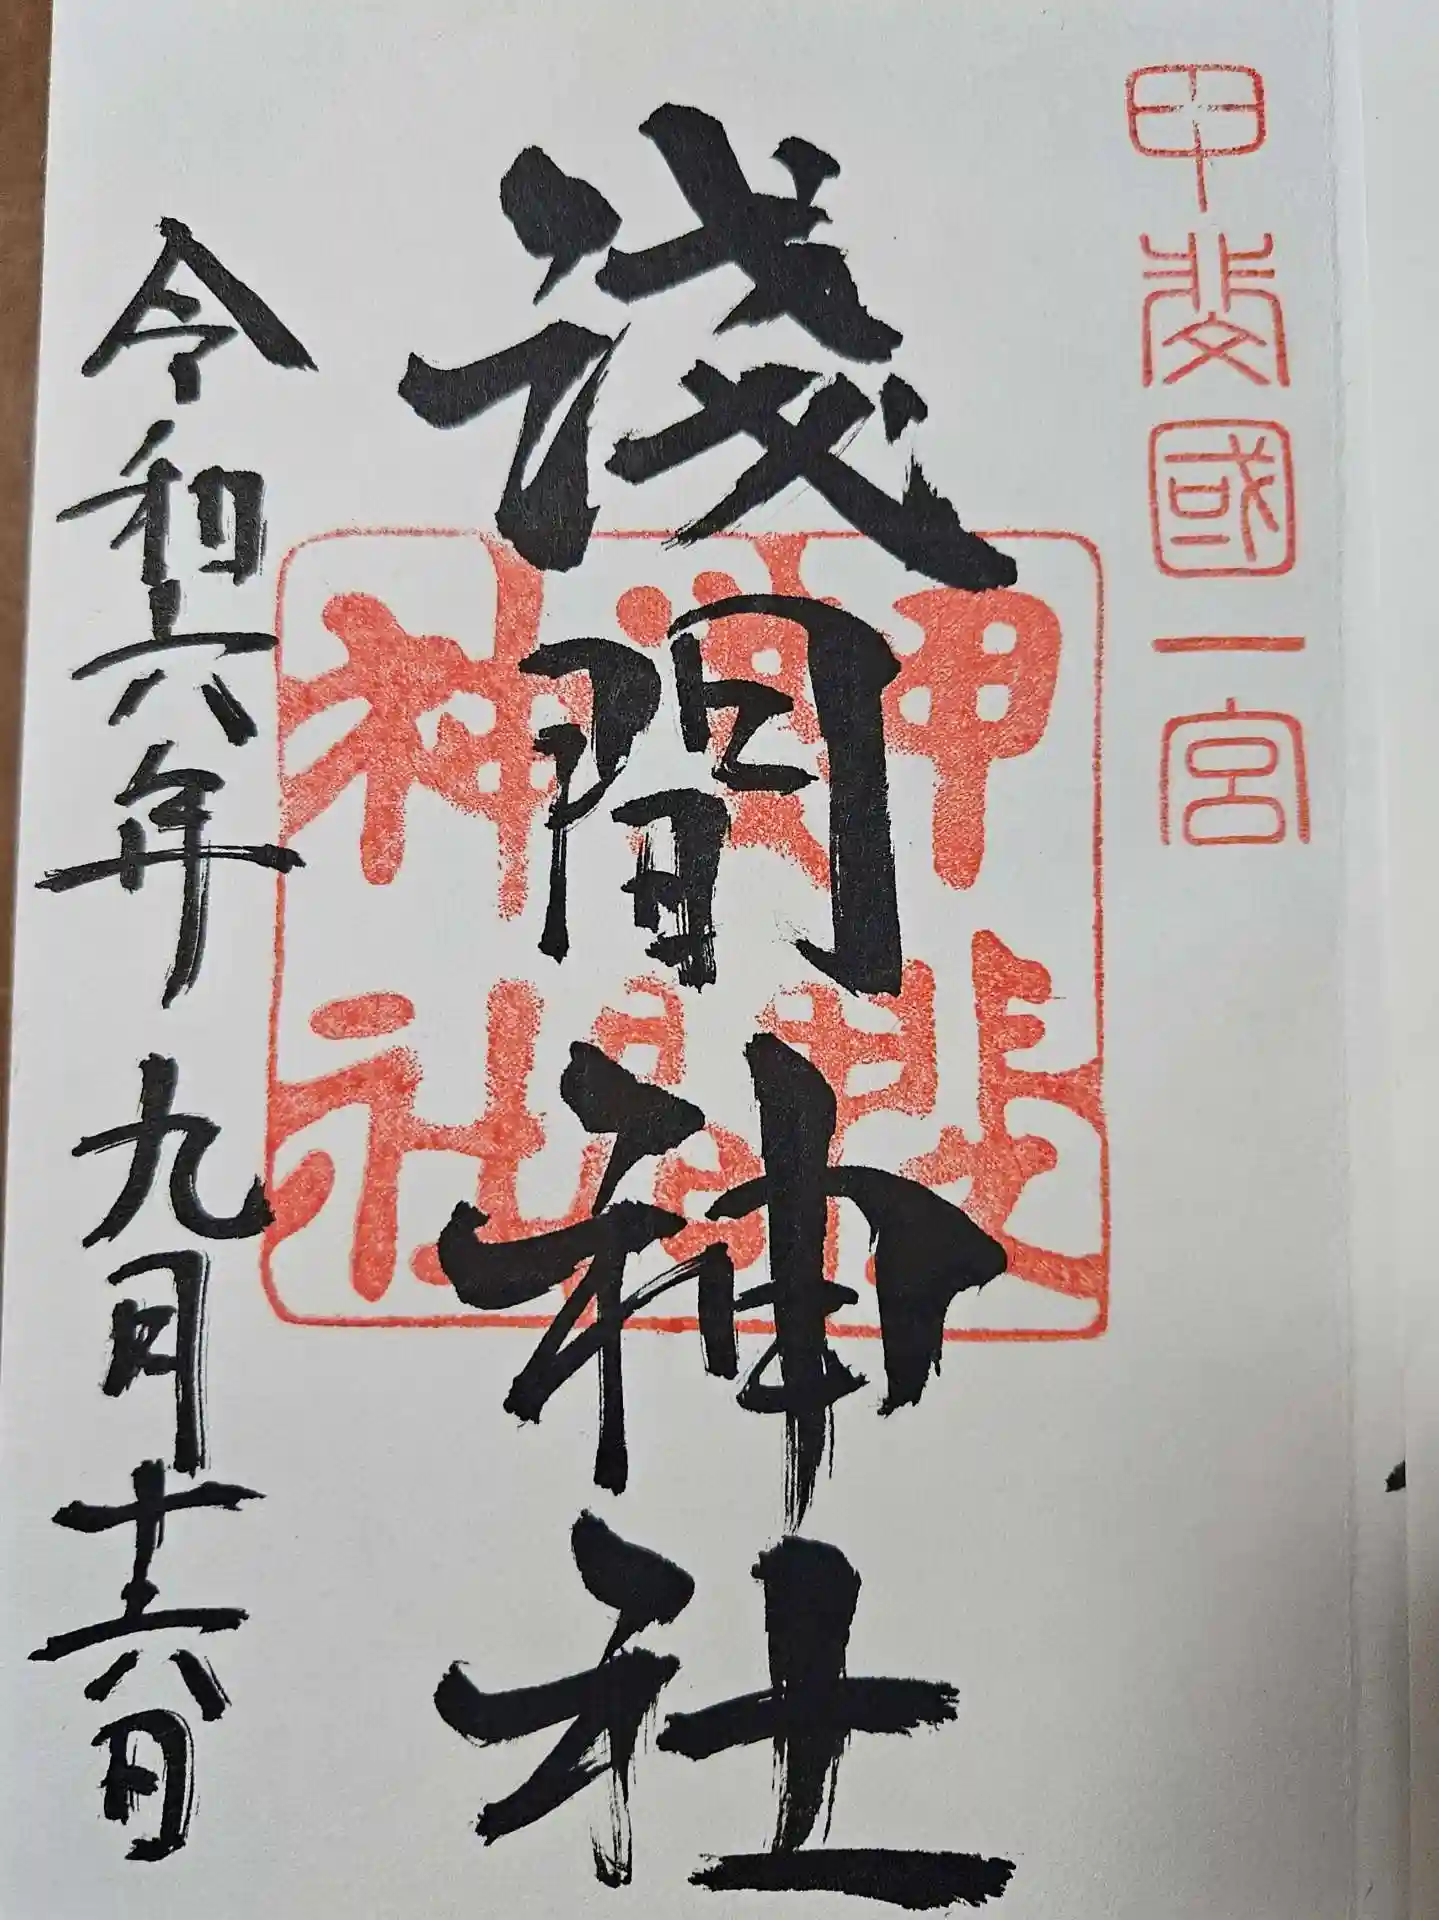 甲斐國一宮
淺間神社
甲斐
淺間
神社
令和六年九月十六日